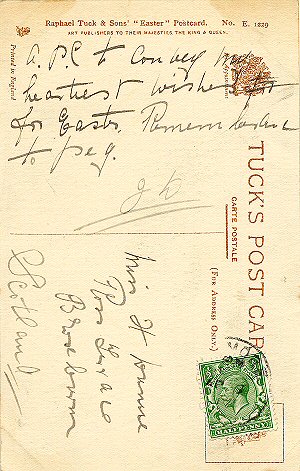 Raphael Tuck & Sons' "Easter" Postcard. No. E. 1229
ART PUBLISHERS TO THEIR MAJESTIES THE KING & QUEEN.
Printed in England
a. P.C to convey my
heartiest wishes for
for Easter. Remembrance
to peg.
TUCK'S POST CARD
CARTE POSTALE
(FOR ADDRESS ONLY.)
Miss
Ross
Broxburn
Scotland
HALFPENNY